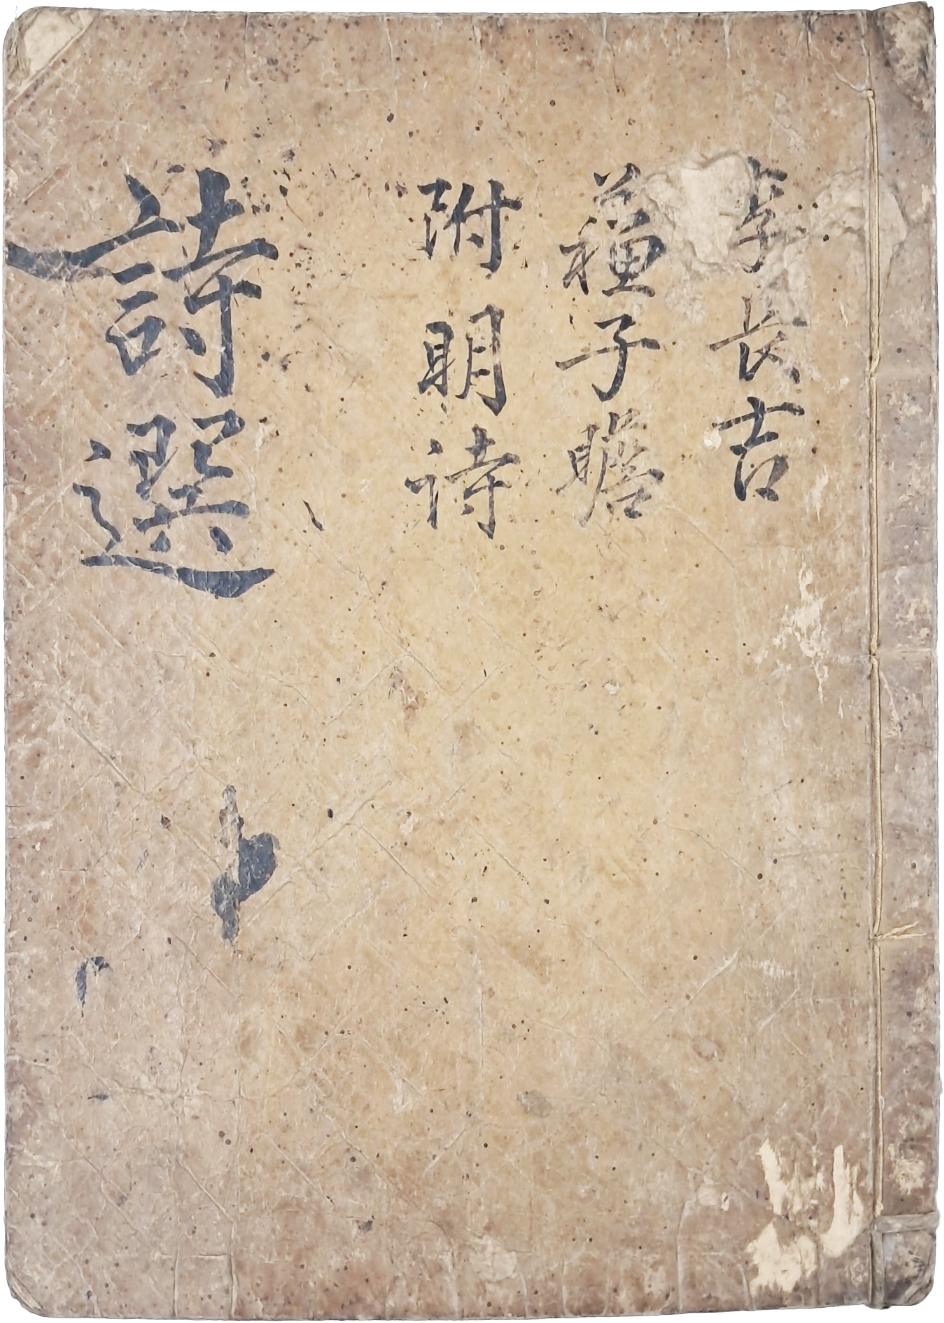 李長吉
蘓子瞻
附明詩
詩選